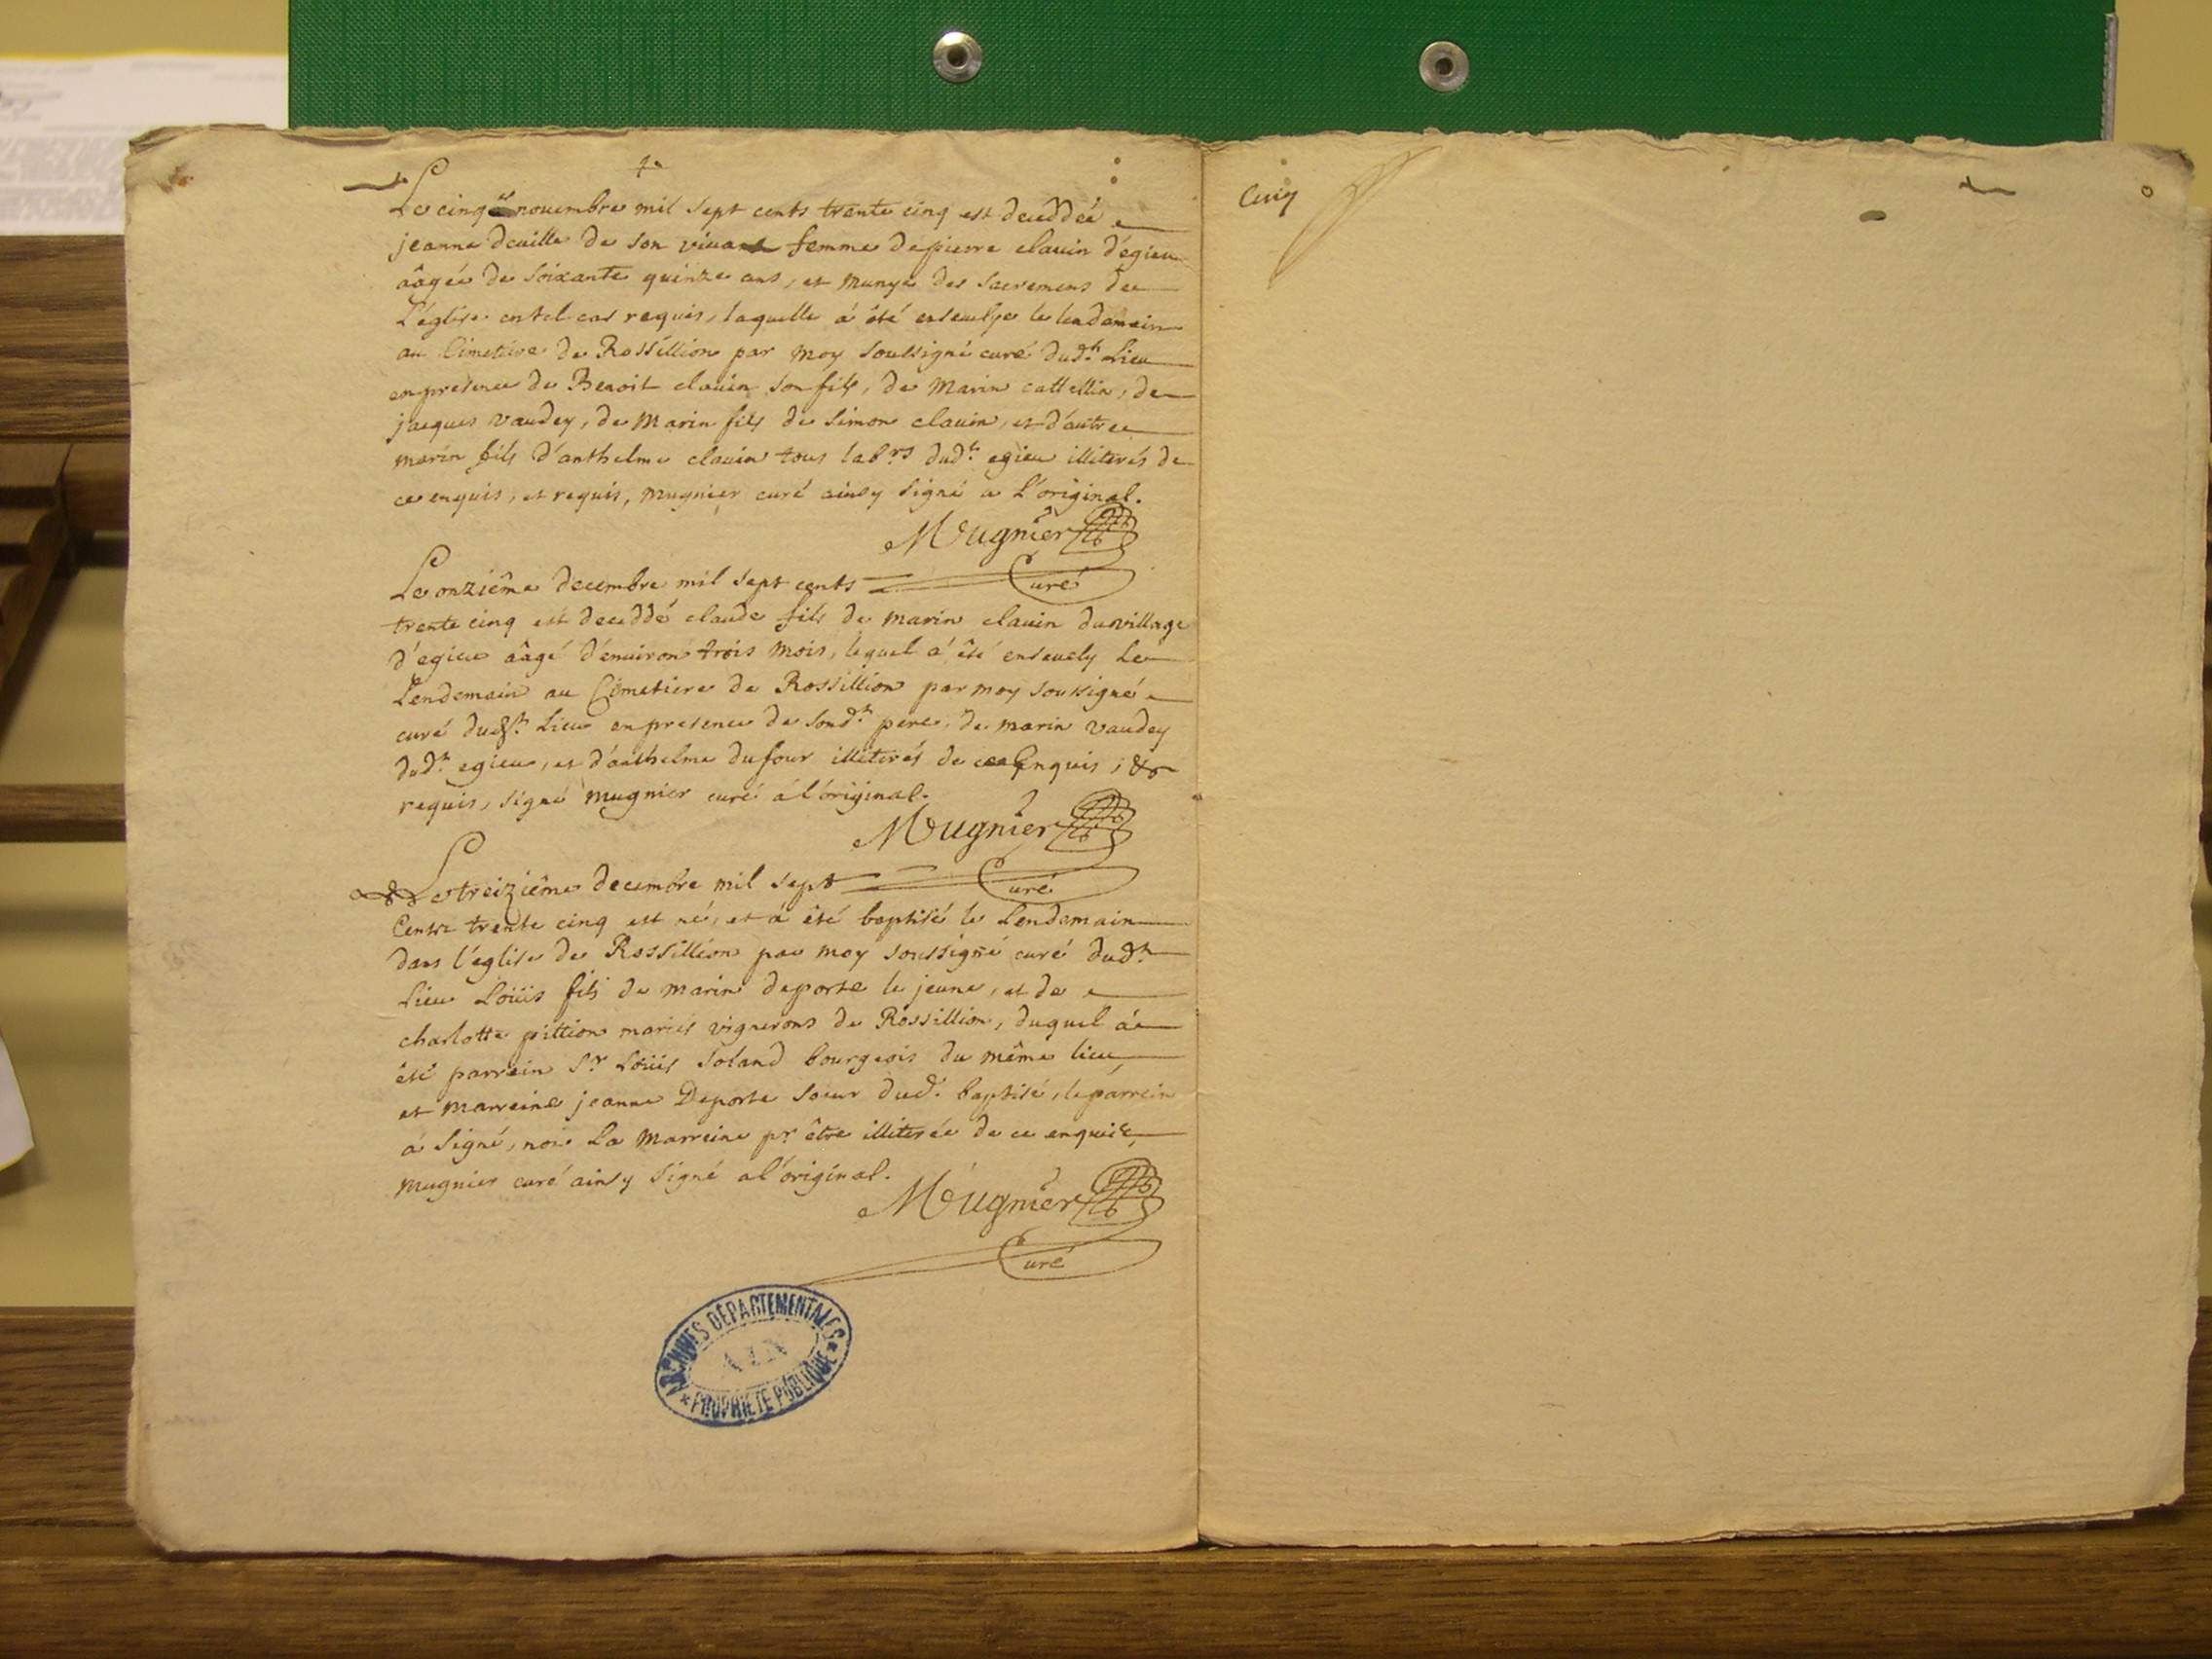 Le cinq novembre mil sept cents trente cinq est deceddéé
jeanne deville de son vivant femme de pierre clavin d'egieu
ââgéé de soixante quinze ans, et munye des sacremens de
L'église en tel cas requis, laquelle á été ensevelye le lendemain
au Cimetière de Rossillion par moy soussigné curé dudt. Lieu
en presence de Benoit clavin son fils, de Marin cattellin, de
jacques vaudey, de Marin fils de simon clavin, et d'autre
marin fils d'anthelme clavin tous labrs dudt. egieu illiterés de
ce enquis, et requis, mugnier curé ainsy signé a L'original.
Mugnier
Curé
Le onziême decembre mil sept cents
trente cinq est deceddé claude fils de marin clavin du village
d'egieu ââgé d'environ trois mois, lequel á été ensevely Le
Lendemain au Cimetiere de Rossillion par moy soussigné
curé dudt. Lieu en presence de sondt. pere, de marin vaudey
dudt. egieu, et d'anthelme dufour illiterés de ce Enquis, &
requis, signé mugnier curé á l'original.
Mugnier
Curé
Le treiziême decembre mil sept
Cents trente cinq est né, et á été baptisé le Lendemain
dans l'église de Rossillion par moy soussigné curé dudt.
Lieu Loüis fils de marin deporte le jeune, et de
charlotte pittion mariés vignerons de Rossillion, duquel á
été parrein Sr. Loüis Soland bourgeois du même lieu,
et marreine jeanne Deporte soeur dudt. baptisé, le parrein
á signé, non La marreine pr. être illiterée de ce enquise,
mugnier curé ainsy signé a l'original.
Mugnier
Curé
ARCHIVES DÉPARTEMENTALES
AIN
* PROPRIÉTÉ PUBLIQUE *
Cinq